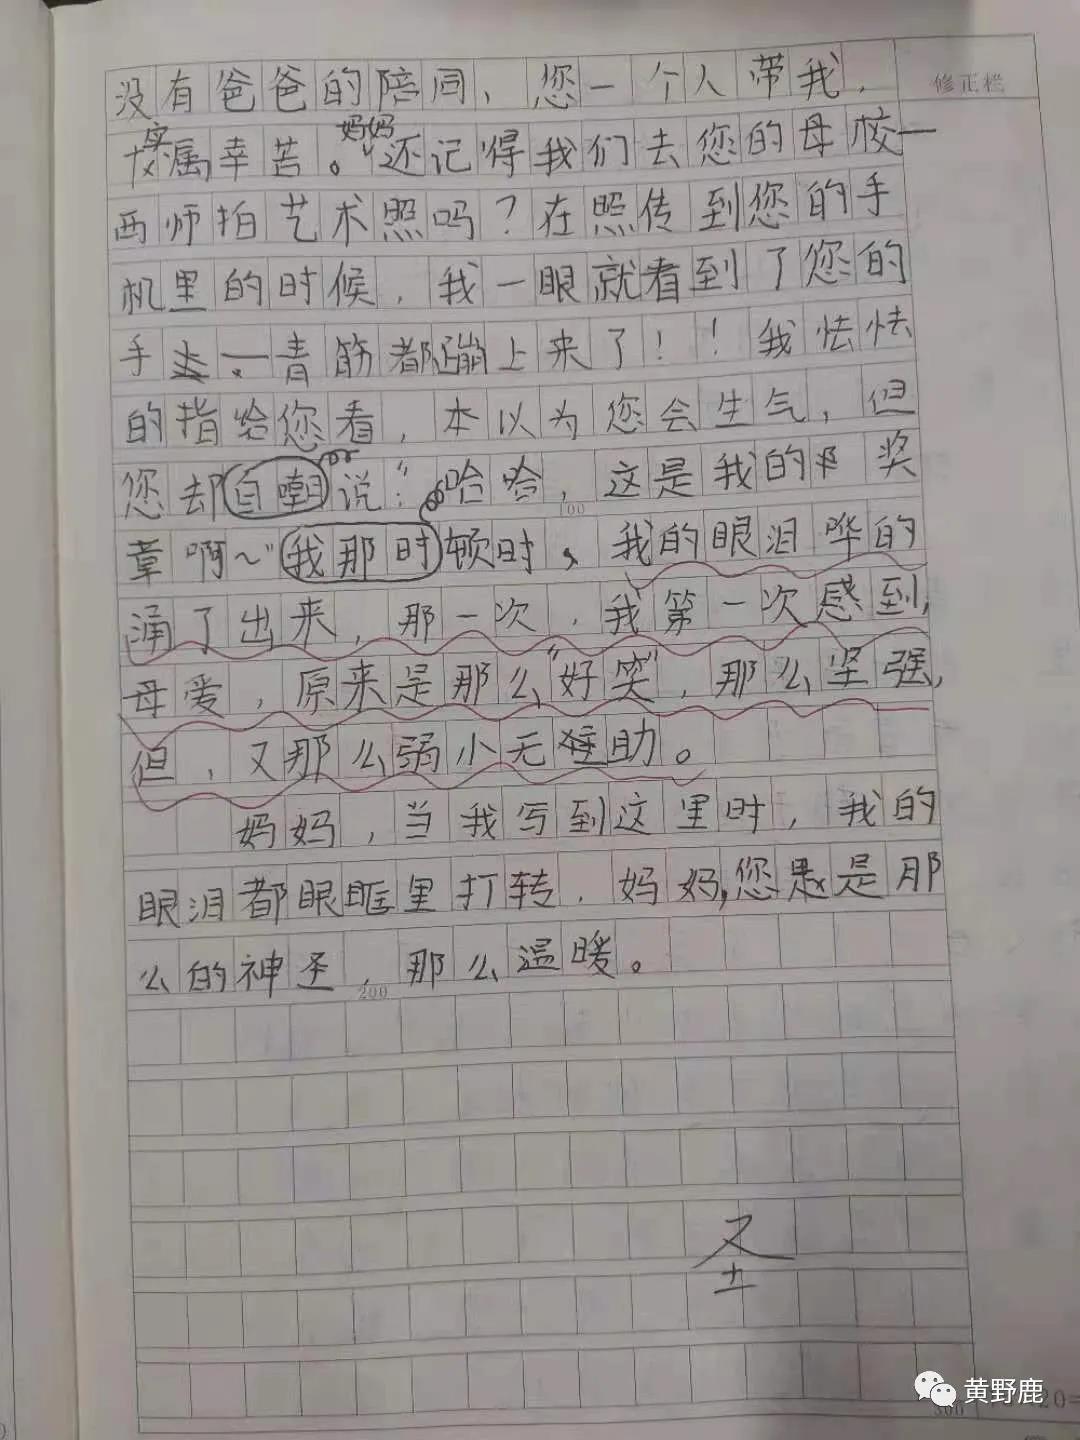 没有爸爸的陪同，您一个人带我，
修正栏
实属幸苦。妈妈还记得我们去您的母校一
西师拍艺术照吗？在照传到您的手
机里的时候，我一眼就看到了您的
手，青筋都蹦上来了！！我怯怯
的指给您看，本以为您会生气，但
您却自嘲说：“哈哈，这是我的奖
100
章啊~”我那时顿时，我的眼泪哗的
涌了出来，那一次，我第一次感到，
母爱，原来是那么“好笑”，那么坚强，
但，又那么弱小无助。
妈妈，当我写到这里时，我的
眼泪都眼眶里打转，妈妈，您是那
么的神圣，那么温暖。
200
300
黄野鹿
20=